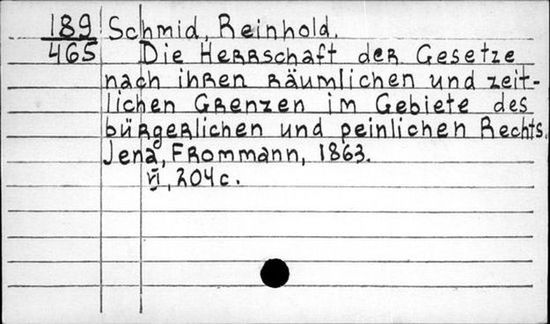 189 Schmid, Reinhold.
465 Die Herrschaft der Gesetze
nach ihren räumlichen und zeit-
lichen Grenzen im Gebiete des
bürgerlichen und peinlichen Rechts.
Jena, Frommann, 1863.
VI, 204 c.